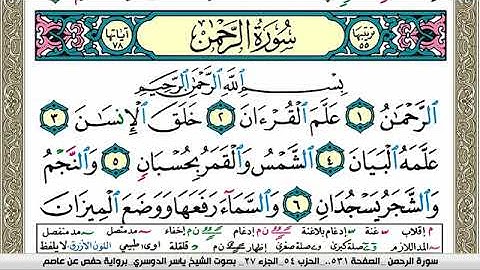 ترتيبها ٥٥ سُورَةُ الرَّحْمَٰن آياتها ٧٨
بِسْمِ اللَّهِ الرَّحْمَٰنِ الرَّحِيمِ
الرَّحْمَٰنُ ١ عَلَّمَ الْقُرْءَانَ ٢ خَلَقَ الْإِنسَٰنَ ٣
عَلَّمَهُ الْبَيَانَ ٤ الشَّمْسُ وَالْقَمَرُ بِحُسْبَانٍ ٥ وَالنَّجْمُ
وَالشَّجَرُ يَسْجُدَانِ ٦ وَالسَّمَآءَ رَفَعَهَا وَوَضَعَ الْمِيزَانَ
م إقلاب ~ غنة ن إدغام بلاغنة ن م إدغام ~ مد متصل ~ مد منفصل
~ المد اللازم صلة كبرى صلة صغرى إظهار ن م قلقلة اوى طبيعي اللون الأزرق لا يلفظ
سورة الرحمن _الصفحة ٥٣١_ الحزب ٥٤_ الجزء ٢٧_ بصوت الشيخ ياسر الدوسري_ برواية حفص عن عاصم